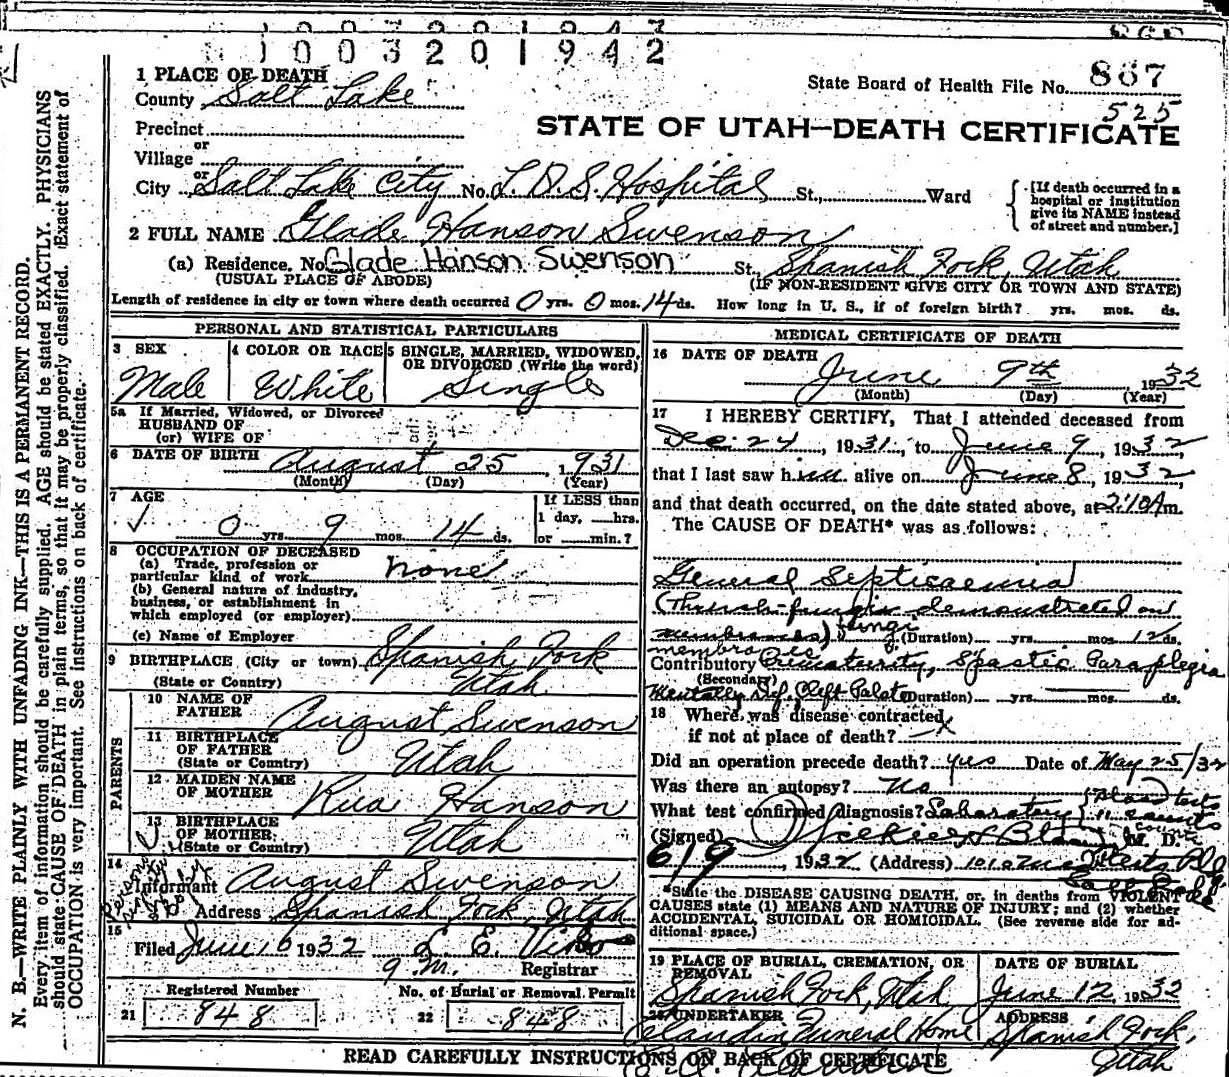 1003201942
1 PLACE OF DEATH
State Board of Health File No. 867
County Salt Lake
525
Precinct
STATE OF UTAH—DEATH CERTIFICATE
or
Village
or
City Salt Lake City No. L. D. S. Hospital St., Ward
[If death occurred in a hospital or institution give its NAME instead of street and number.]
2 FULL NAME Glade Hanson Swenson
(a) Residence. No. Glade Hanson Swenson St. Spanish Fork, Utah
(USUAL PLACE OF ABODE) (IF NON-RESIDENT GIVE CITY OR TOWN AND STATE)
Length of residence in city or town where death occurred 0 yrs. 0 mos. 14 ds. How long in U. S., if of foreign birth? yrs. mos. ds.
PERSONAL AND STATISTICAL PARTICULARS
3 SEX
Male
4 COLOR OR RACE
White
5 SINGLE, MARRIED, WIDOWED, OR DIVORCED (Write the word)
Single
5a If Married, Widowed, or Divorced
HUSBAND OF
(or) WIFE OF
6 DATE OF BIRTH August 25, 1931
(Month) (Day) (Year)
7 AGE
0 yrs. 9 mos. 14 ds.
If LESS than
1 day, hrs.
or min.?
8 OCCUPATION OF DECEASED
(a) Trade, profession or
particular kind of work none
(b) General nature of industry,
business, or establishment in
which employed (or employer)
(c) Name of Employer
9 BIRTHPLACE (City or town) Spanish Fork
(State or Country) Utah
PARENTS
10 NAME OF
FATHER August Swenson
11 BIRTHPLACE
OF FATHER
(State or Country) Utah
12 MAIDEN NAME
OF MOTHER Hanson
13 BIRTHPLACE
OF MOTHER
(State or Country) Utah
14
Informant August Swenson
Address Spanish Fork, Utah
15
Filed June 16 1932 L. E. Viko
G.M. Registrar
Registered Number
21 848
No. of Burial or Removal Permit
22 848
MEDICAL CERTIFICATE OF DEATH
16 DATE OF DEATH
June 9th, 1932
(Month) (Day) (Year)
17 I HEREBY CERTIFY, That I attended deceased from
Dec. 24, 1931, to June 9, 1932,
that I last saw him alive on June 8, 1932,
and that death occurred, on the date stated above, at 2:10 A m.
The CAUSE OF DEATH* was as follows:
General Septicaemia
(Thrush-fungi demonstrated on
membranes) fungi (Duration) yrs. mos. 12 ds.
membranes
Contributory Prematurity, Spastic Paraplegia
(Secondary)
Mentally Def. Cleft Palate (Duration) yrs. mos. ds.
18 Where was disease contracted
if not at place of death? X
Did an operation precede death? yes Date of May 25/32
Was there an autopsy? No
What test confirmed diagnosis? Laboratory blood tests
(Signed) M. D.
6/9, 1932 (Address)
*State the DISEASE CAUSING DEATH, or, in deaths from VIOLENT
CAUSES state (1) MEANS AND NATURE OF INJURY; and (2) whether
ACCIDENTAL, SUICIDAL OR HOMICIDAL. (See reverse side for ad-
ditional space.)
19 PLACE OF BURIAL, CREMATION, OR
REMOVAL
Spanish Fork, Utah
DATE OF BURIAL
June 12, 1932
20 UNDERTAKER
Funeral Home
ADDRESS
Spanish Fork,
Utah
READ CAREFULLY INSTRUCTIONS ON BACK OF CERTIFICATE
N. B.—WRITE PLAINLY WITH UNFADING INK—THIS IS A PERMANENT RECORD.
Every item of information should be carefully supplied. AGE should be stated EXACTLY. PHYSICIANS
should state CAUSE OF DEATH in plain terms, so that it may be properly classified. Exact statement of
OCCUPATION is very important. See instructions on back of certificate.